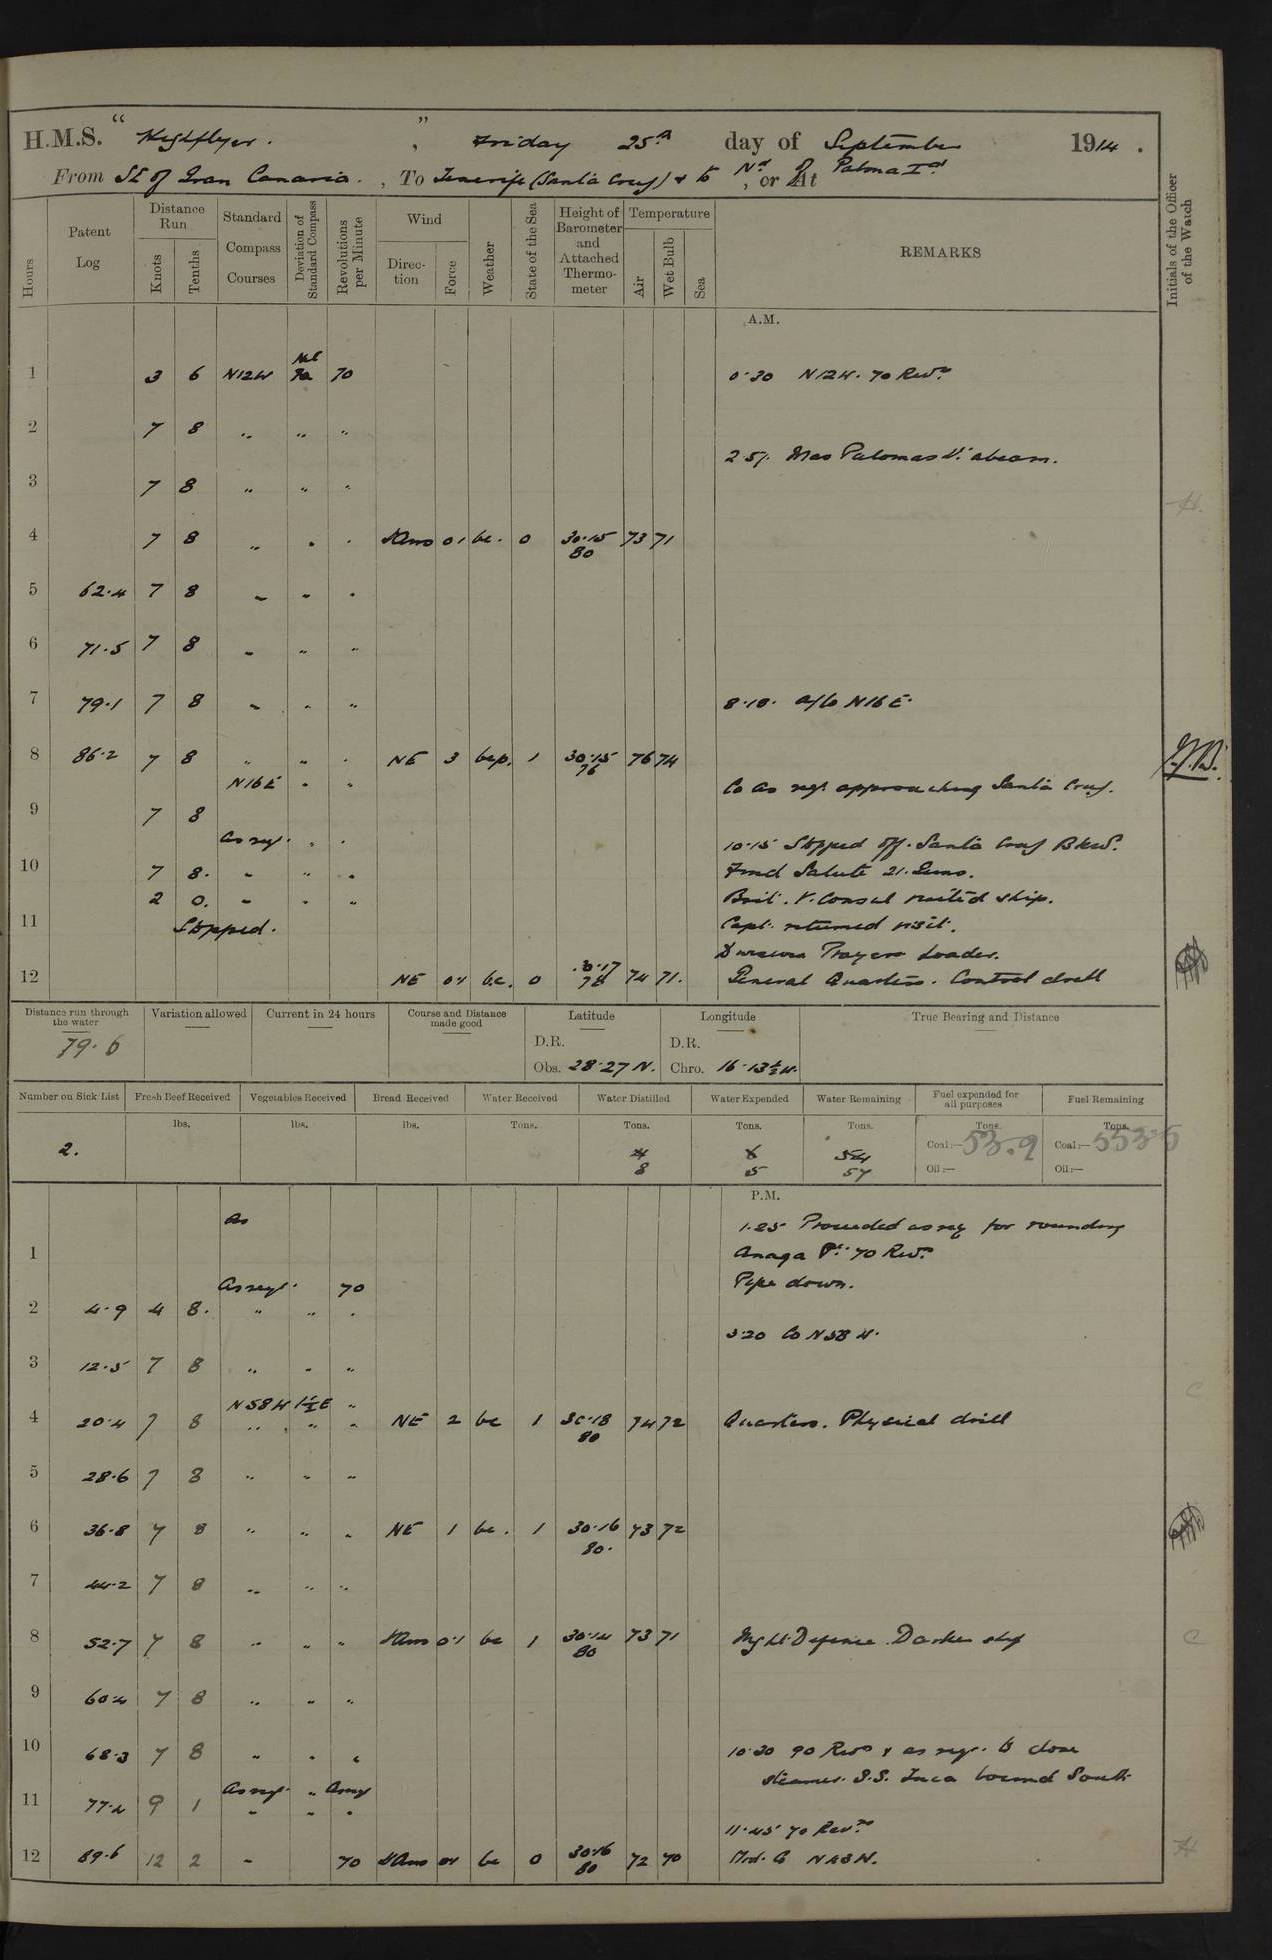 H.M.S. "Highflyer.", Friday 25th day of September 1914.
From SE of Gran Canaria., To Tenerife (Santa Cruz) & to, or At Nd of Palma Id
Hours
Patent Log
Distance Run
Knots
Tenths
Standard Compass Courses
Deviation of Standard Compass
Revolutions per Minute
Wind
Direction
Force
Weather
State of the Sea
Height of Barometer and Attached Thermometer
Temperature
Air
Wet Bulb
Sea
REMARKS
Initials of the Officer of the Watch
A.M.
1 3 6 N12W Nil 70 0.30 N12W. 70 Revs
2 7 8 " " "
2.57. Mas Palomas Lt abeam.
3 7 8 " " "
4 7 8 " " " Airs 0.1 bc. 0 30.15 80 73 71
5 62.4 7 8 " " "
6 71.5 7 8 " " "
7 79.1 7 8 " " " 8.10. a/co N16E.
8 86.2 7 8 " " " NE 3 bcp. 1 30.15 76 76 74
N16E " " Co as reqt approaching Santa Cruz.
9 7 8
As reqt. " " 10.15 Stopped off. Santa Cruz Bkwr.
10 7 8. " " " Fired Salute 21. Guns.
2 0. " " " Brit. V. Consul visited ship.
11 Stopped. Capt. returned visit.
Divisions Prayers
12 NE 0.1 b.c. 0 30.17 78 74 71. General Quarters. Control drill
Distance run through the water
79.6
Variation allowed
Current in 24 hours
Course and Distance made good
Latitude
D.R.
Obs. 28.27 N.
Longitude
D.R.
Chro. 16.13½ W.
True Bearing and Distance
Number on Sick List
Fresh Beef Received
Vegetables Received
Bread Received
Water Received
Water Distilled
Water Expended
Water Remaining
Fuel expended for all purposes
Fuel Remaining
lbs. lbs. lbs. Tons. Tons. Tons. Tons. Tons. Tons.
2. Coal:— 53.9 Coal:— 553.5
8 5 57 Oil:— Oil:—
P.M.
As 1.25 Proceeded as req for rounding
1 Anaga Pt. 70 Revs
As reqt. 70 Pipe down.
2 4.9 4 8. " " "
3.20 Co N58W.
3 12.5 7 8 " " "
N58W 1½E "
4 20.4 7 8 " " " NE 2 bc 1 30.18 80 74 72 Quarters. Physical drill
5 28.6 7 8 " " "
6 36.8 7 8 " " " NE 1 bc. 1 30.16 80. 73 72
7 44.2 7 8 " " "
8 52.7 7 8 " " " Airs 0.1 bc 1 30.14 80 73 71 Night Defence. Darken ship
9 60.4 7 8 " " "
10 68.3 7 8 " " " 10.30 90 Revs & as reqt. to close
As reqt. " As reqt steamer. S.S. Inca bound South
11 77.4 9 1 " " "
11.45 70 Revs
12 89.6 12 2 " 70 Airs 0.1 bc 0 30.16 80 72 70 Mid. Co